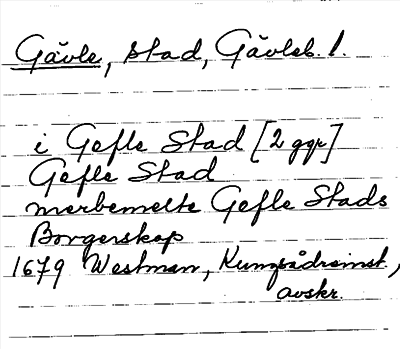 Gävle, stad, Gävleb. l.
i Gefle Stad [2 ggr]
Gefle Stad
merbemelte Gefle Stads
Borgerskap
1679 Westman, Kungsådrsinst.,
avskr.